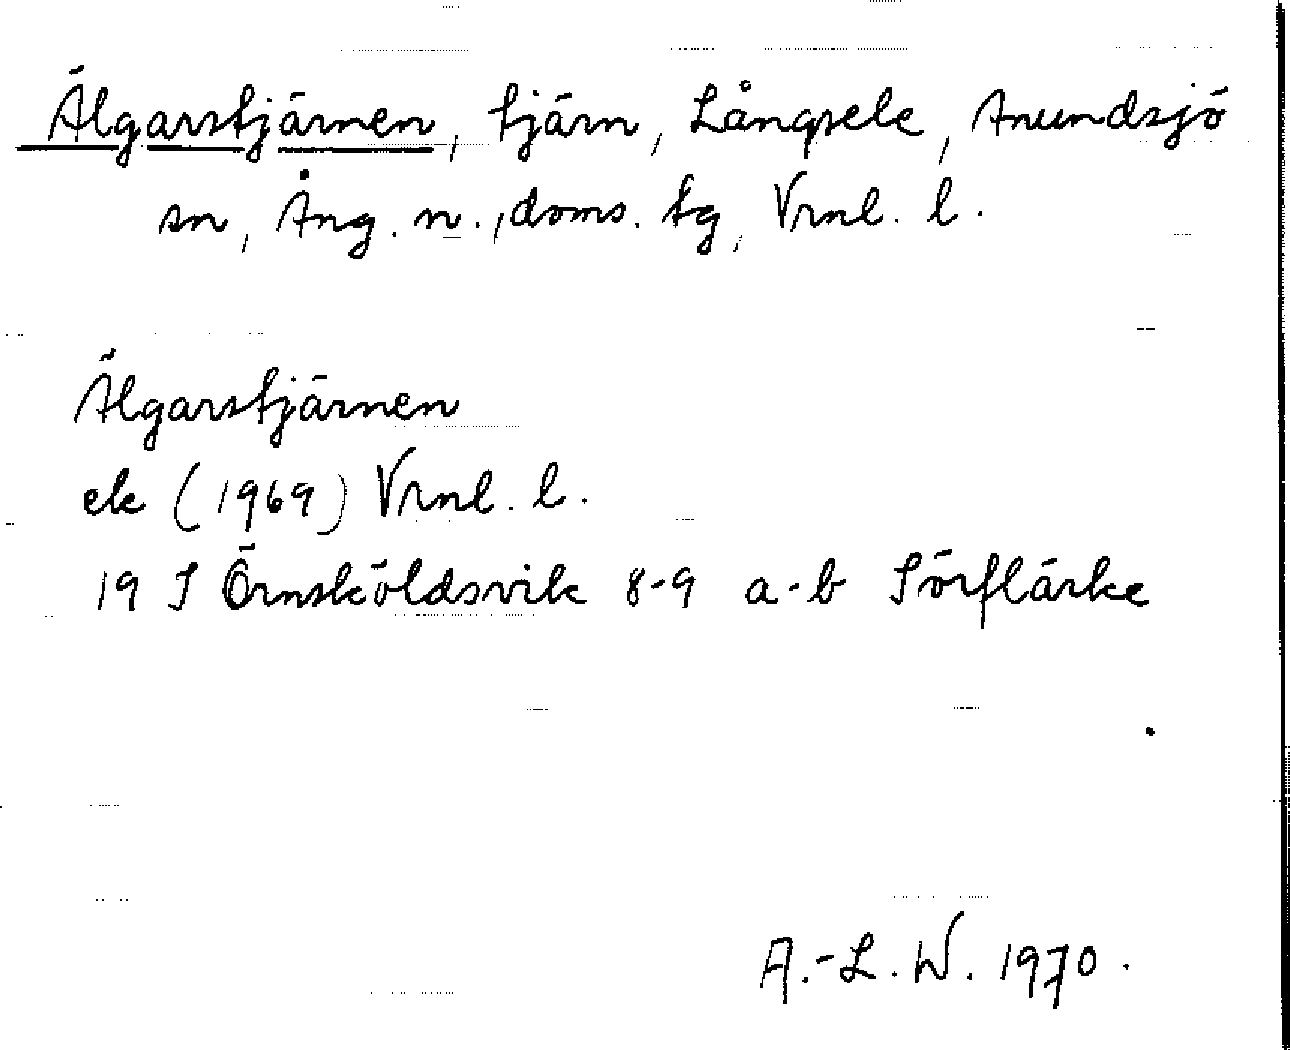 Älgarstjärnen, tjärn, Långsele, Anundsjö
sn, Ång. n., doms. tg, Vrnl. l.
Älgarstjärnen
ek (1969) Vrnl. l.
19 I Örnsköldsvik 8-9 a-b Sörflärke
A.-L. W. 1970.